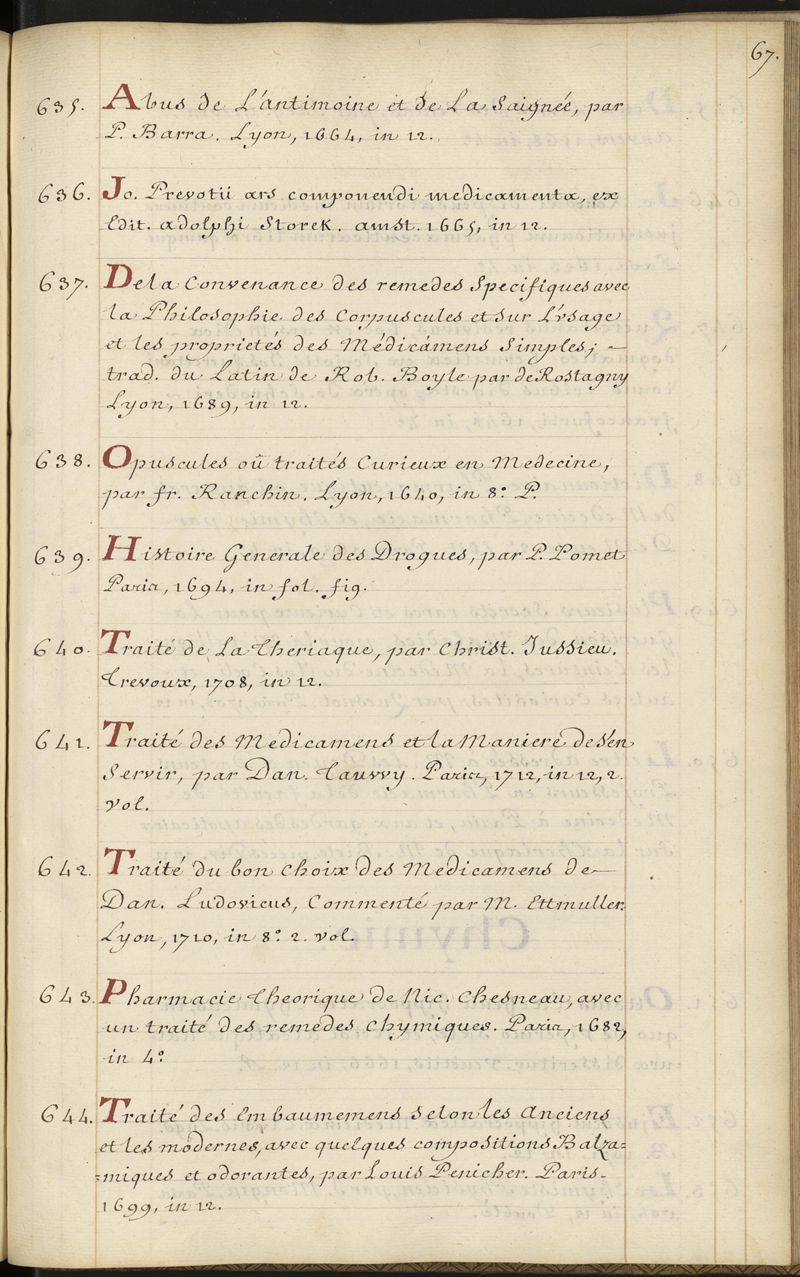 67.
635. Abus de L'antimoine et de La Saignée, par
P. Barra. Lyon, 1664, in 12.
636. Jo. Prevotii ars componendi medicamenta, ex
Edit. adolphi Storck. amst. 1665, in 12.
637. De la Convenance des remedes Specifiques avec
la Philosophie des Corpuscules et sur L'Vsage
et les proprietés des Médicámens Simples; -
trad. du Latin de Rob. Boyle par de Rostagny
Lyon, 1689, in 12.
638. Opuscules oû traités Curieux en Medecine,
par fr. Ranchin. Lyon, 1640, in 8.º P.
639. Histoire Generale des Drogues, par P. Pomet
Paris, 1694, in fol. fig.
640. Traité de La Theriaque, par Christ. Jussieu.
Trevoux, 1708, in 12.
641. Traité des Medicamens et la Maniere de S'en
Servir, par Dan. Tauvry. Paris, 1712, in 12, 2.
Vol.
642. Traité du bon Choix des Medicamens de
Dan. Ludovicus, Commenté par M. Ettmuller.
Lyon, 1710, in 8.º 2. vol.
643. Pharmacie Theorique de Nic. Chesneau, avec
un traité des remedes Chymiques. Paris, 1682,
in 4.º
644. Traité des Embaumemens Selon les Anciens
et les modernes, avec quelques compositions Balza=
=miques et odorantes, par Louis Penicher. Paris.
1699, in 12.